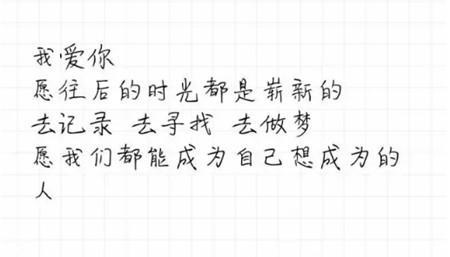 我爱你
愿往后的时光都是崭新的
去记录 去寻找 去做梦
愿我们都能成为自己想成为的
人